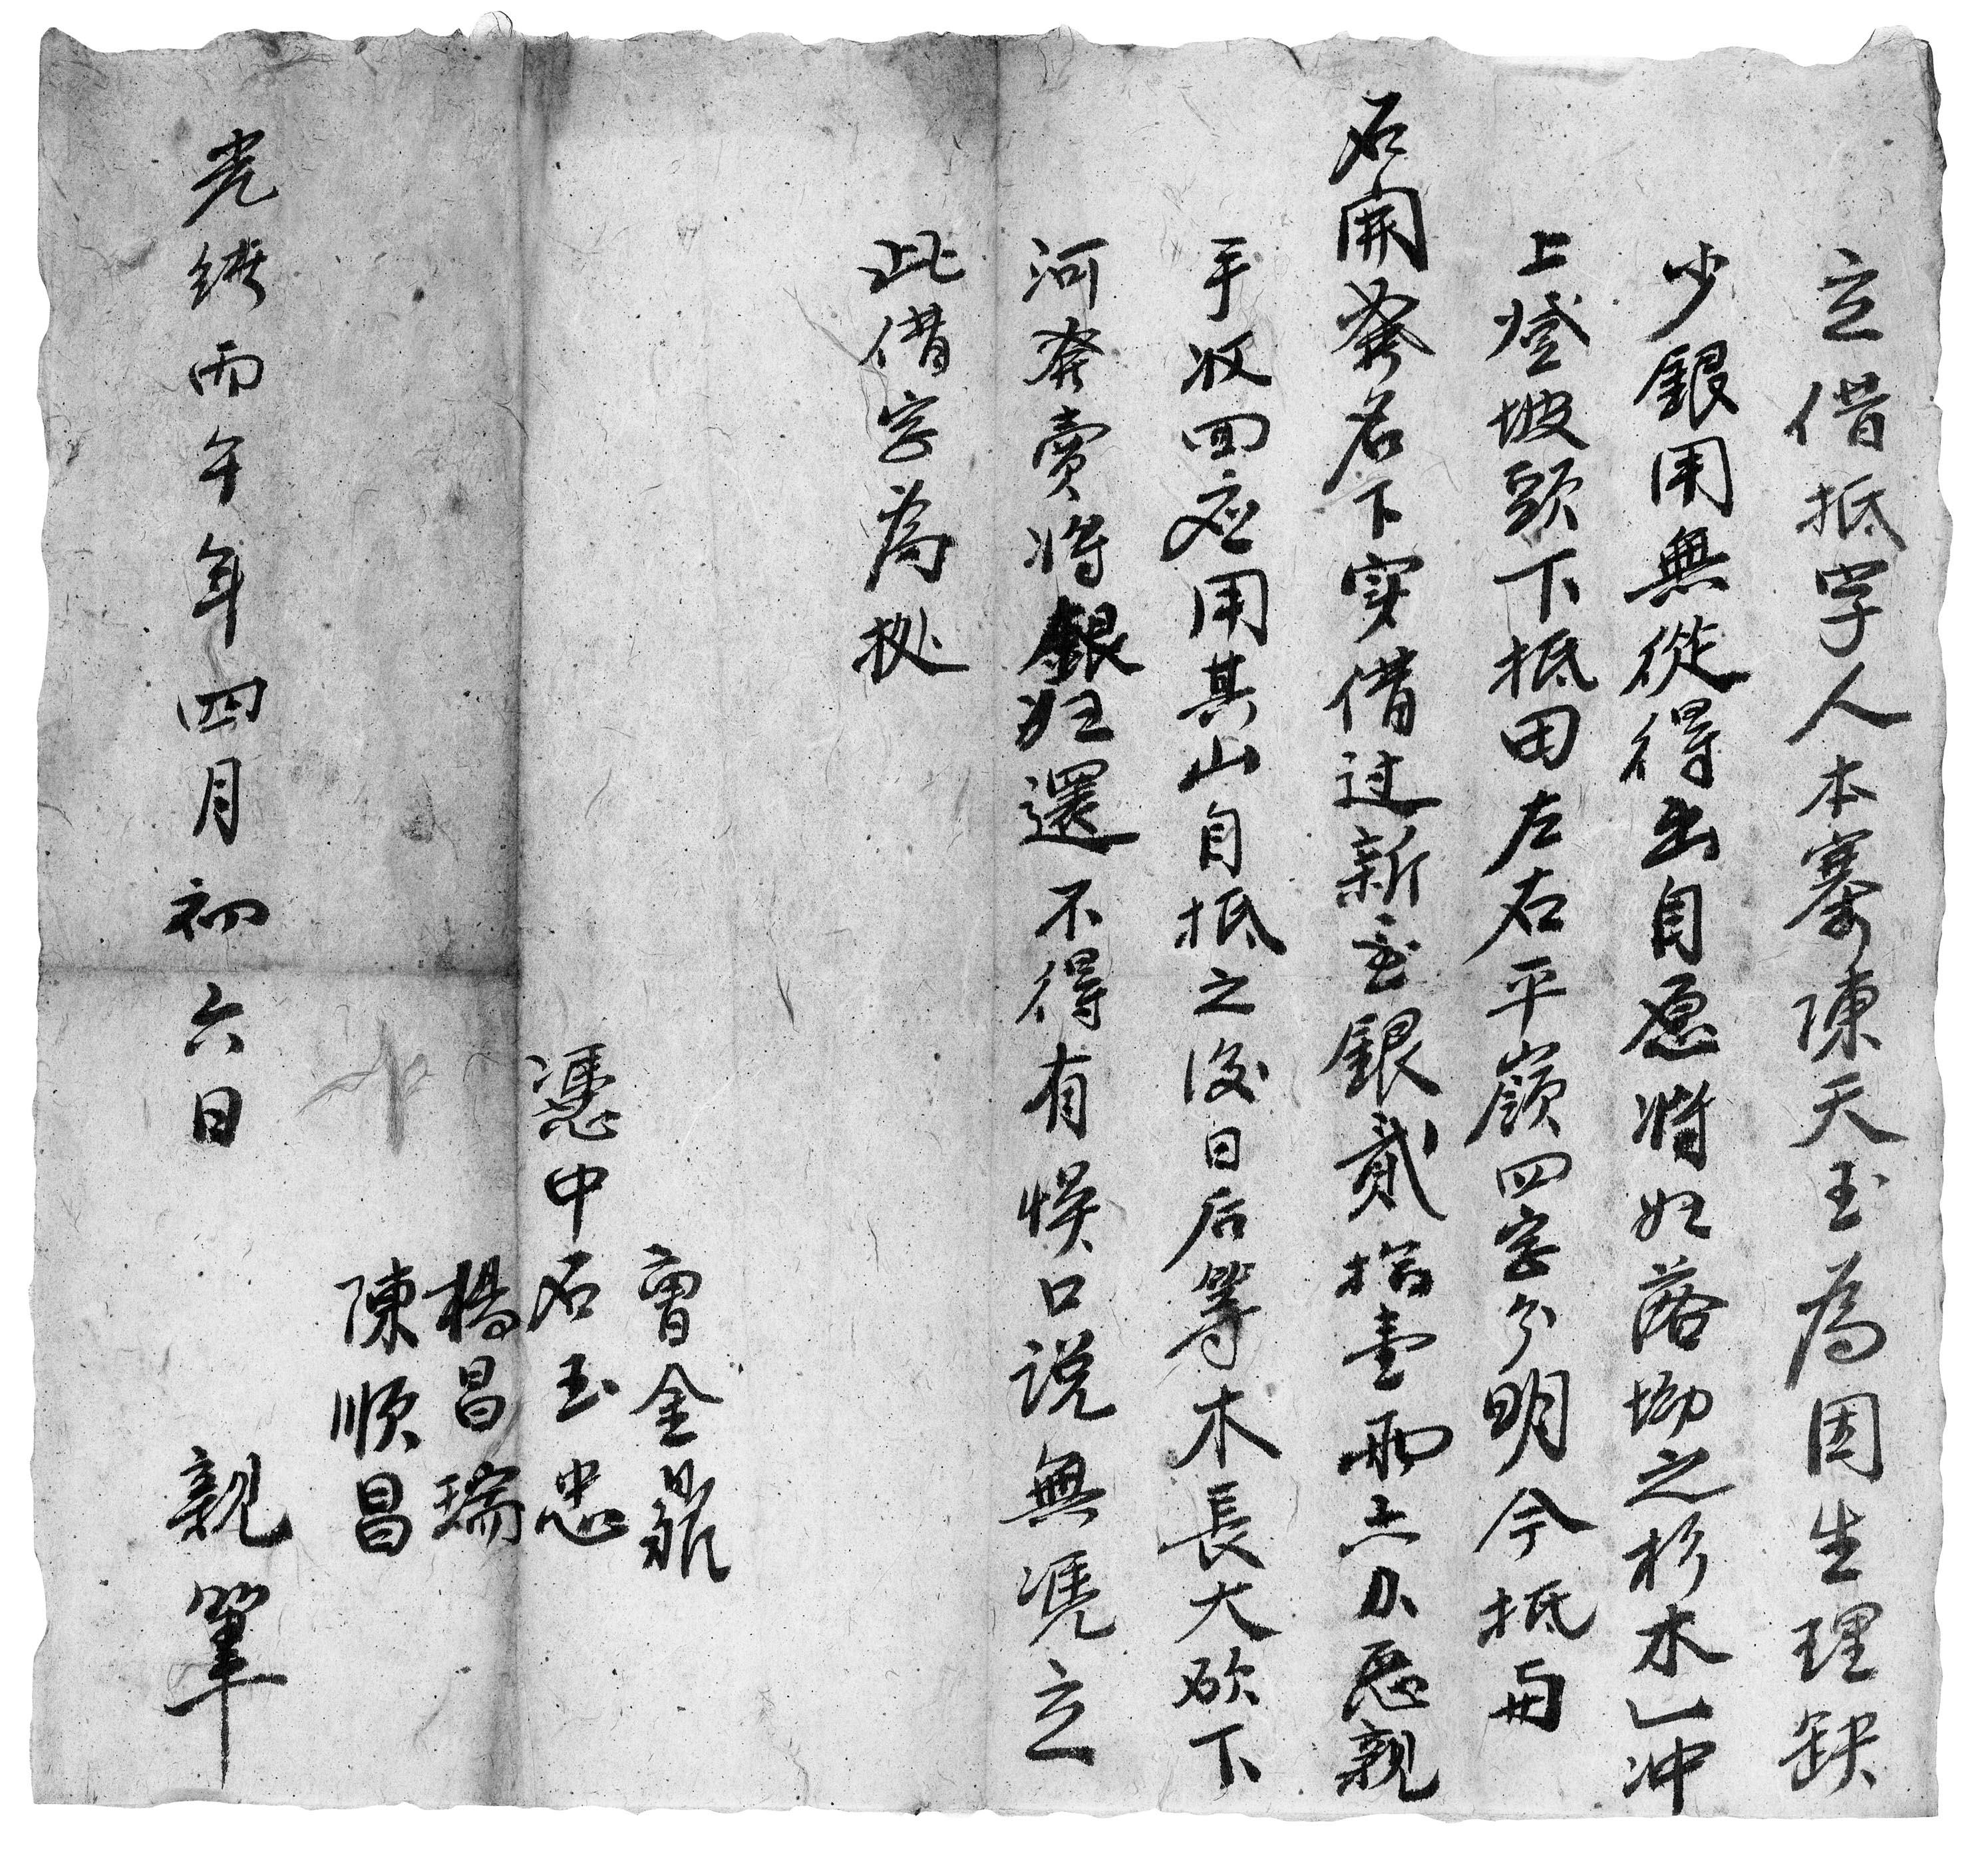 立借抵字人本寨陳天玉為因生理缺
少銀用無從得出自愿將妣落坳之杉木山冲
上燈坡頭下抵田左右平嶺四字分明今抵与
石開發名下实借过新宝銀貳拾壹兩六分悉親
手收回應用其山自抵之後日后等木長大砍下
河發賣將銀归還不得有悮口説無凴立
此借字為拠
曾金鼎
憑中石玉忠
楊昌瑞
陳順昌
光緒丙午年四月初六日 親筆